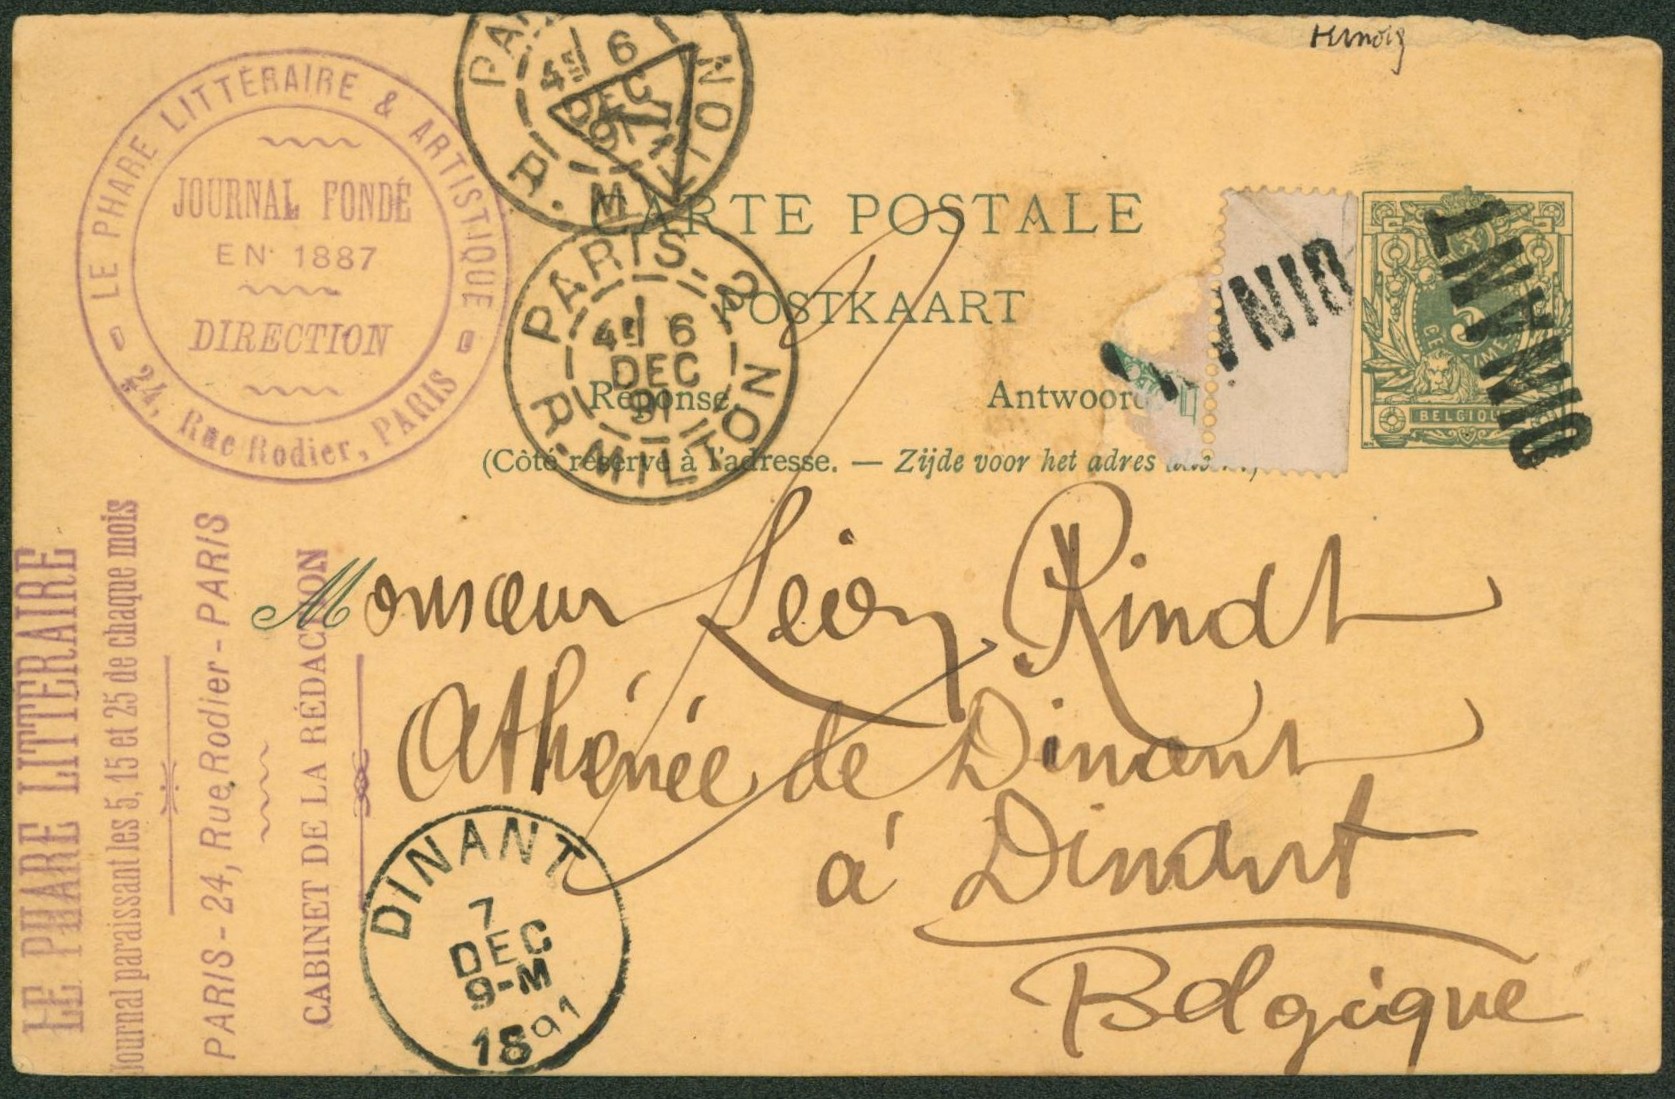 LE PHARE LITTÉRAIRE & ARTISTIQUE
JOURNAL FONDÉ
EN 1887
DIRECTION
24, Rue Rodier, PARIS
PARIS
4E 6
DEC
91
R. MILTON
PARIS-2
4E 6
DEC
91
R. MILTON
CARTE POSTALE
POSTKAART
Réponse. Antwoord
(Côté réservé à l'adresse. — Zijde voor het adres
DINANT
DINANT
5
CENTIMES
BELGIQUE
Monsieur Léon Rindt
Athénée de Dinant
à Dinant
Belgique
DINANT
7
DEC
9-M
1891
LE PHARE LITTERAIRE
Journal paraissant les 5, 15 et 25 de chaque mois
PARIS - 24, Rue Rodier - PARIS
CABINET DE LA RÉDACTION